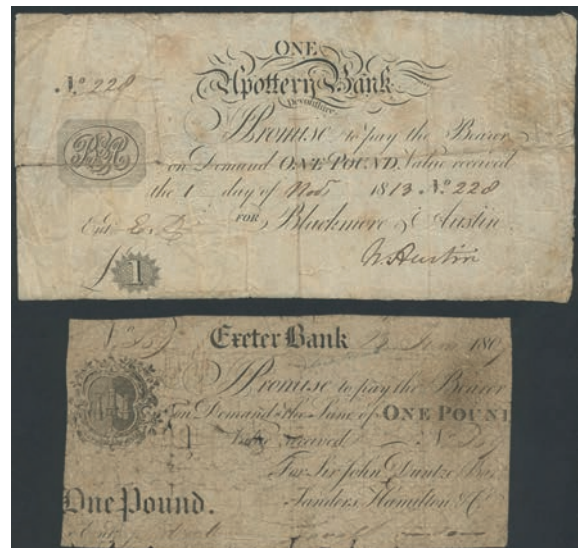 ONE
Nº 228
Upottery Bank
Devonshire
I Promise to pay the Bearer
on Demand ONE POUND Value received
the 1 day of Nov 1813 Nº 228
FOR Blackmore & Austin
Ent
£1
Exeter Bank 180
I Promise to pay the Bearer
on Demand the Sum of ONE POUND
Value received Nº
For Sir John Duntze Bar
Sanders, Hamilton & C
One Pound.